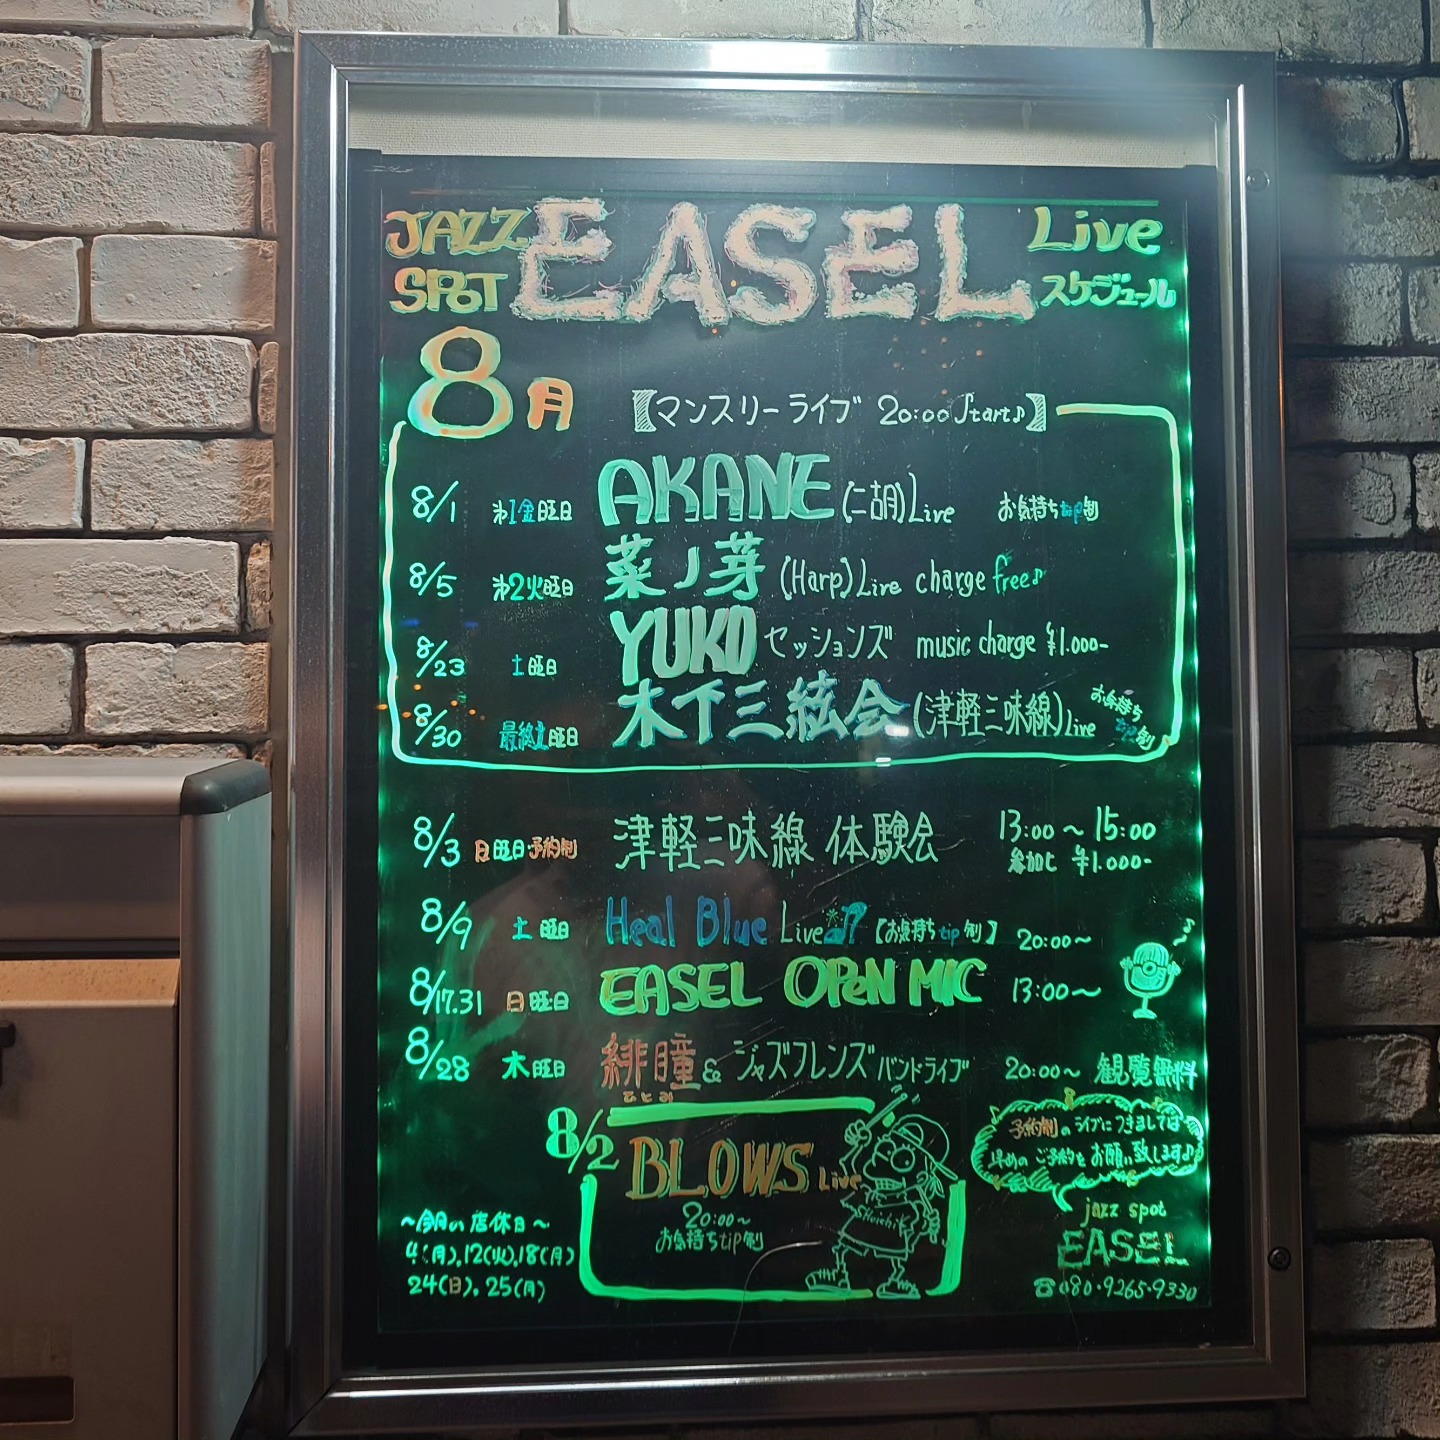 JAZZ SPOT EASEL Live スケジュール
8月
【マンスリーライブ 20:00 Start♪】
8/1 第1金曜日 AKANE (二胡) Live お気持ちtip制
8/5 第2火曜日 菜ノ芽 (Harp) Live charge free♪
8/23 土曜日 YUKO セッションズ music charge ¥1.000-
8/30 最終土曜日 木下三絃会 (津軽三味線) Live お気持ちtip制
8/3 日曜日・予約制 津軽三味線 体験会 13:00〜15:00
参加費 ¥1.000-
8/9 土曜日 Heal Blue Live♪ 【お気持ちtip制】 20:00〜
8/17.31 日曜日 EASEL OPEN MIC 13:00〜
8/28 木曜日 緋瞳 & ジャズフレンズ バンドライブ 20:00〜 観覧無料
ひとみ
8/2 BLOWS Live
20:00〜
お気持ちtip制
Shuichi
予約制のライブにつきましては
早めのご予約をお願い致します♪
〜今月の店休日〜
4(月).12(火).18(月)
24(日).25(月)
jazz spot
EASEL
☎080・9265・9330